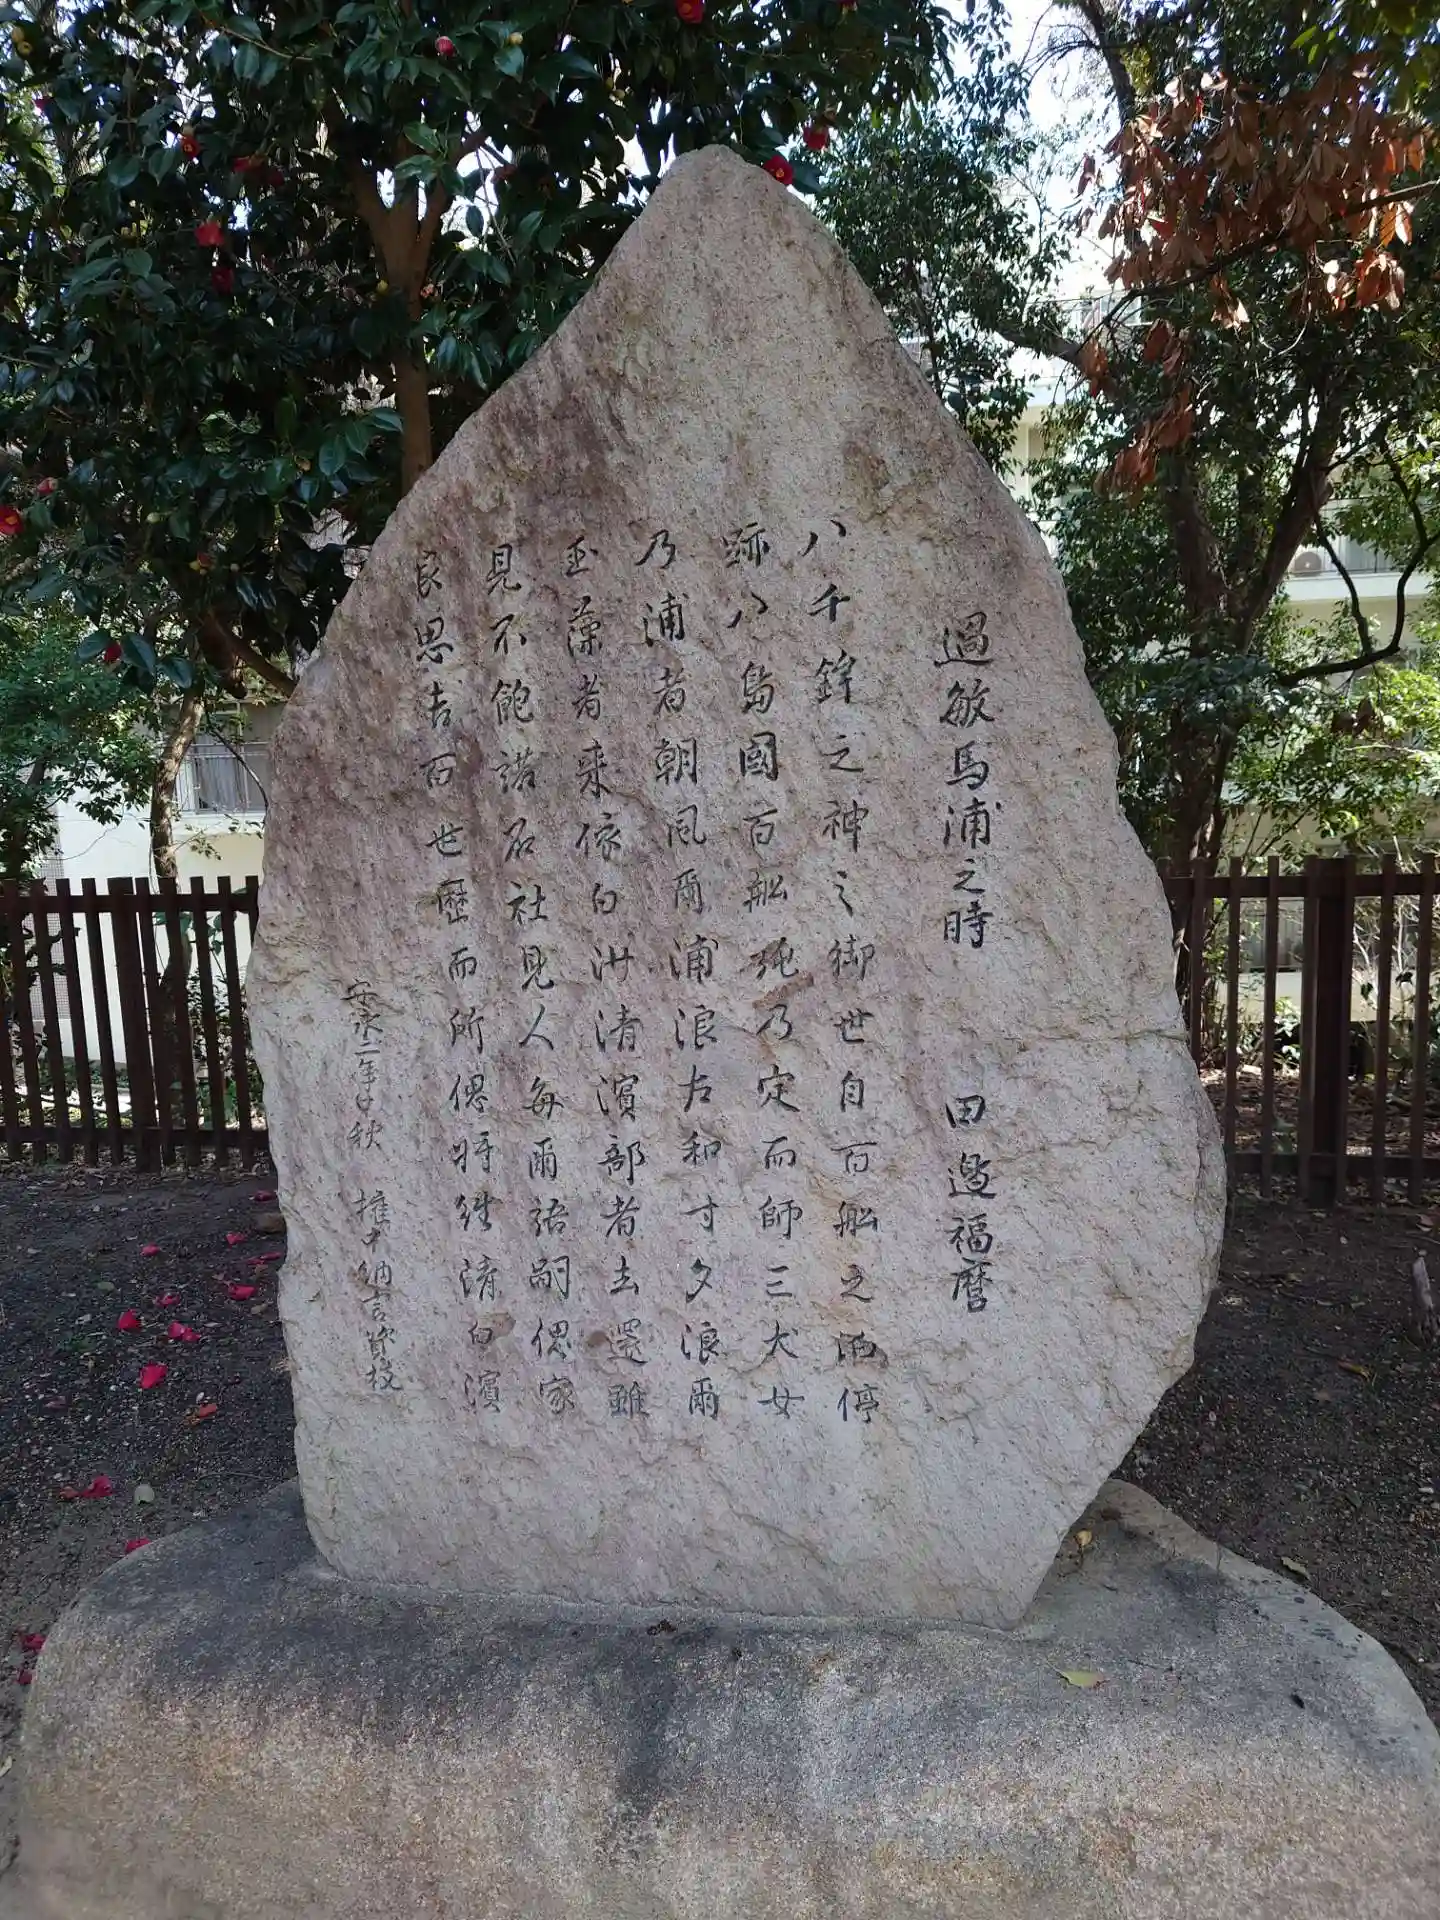 過敏馬浦之時 田邊福麿
八千鉾之神之御世自百舩之泊停
跡八島國百舩純乃定而師三犬女
乃浦者朝風尓浦浪左和寸夕浪爾
玉藻者来依白沙清濱部者去還雖
見不飽諾石社見人毎爾語嗣偲家
良思吉百世歴而所偲将徃清白濱
安永二年中秋 権中納言資枝